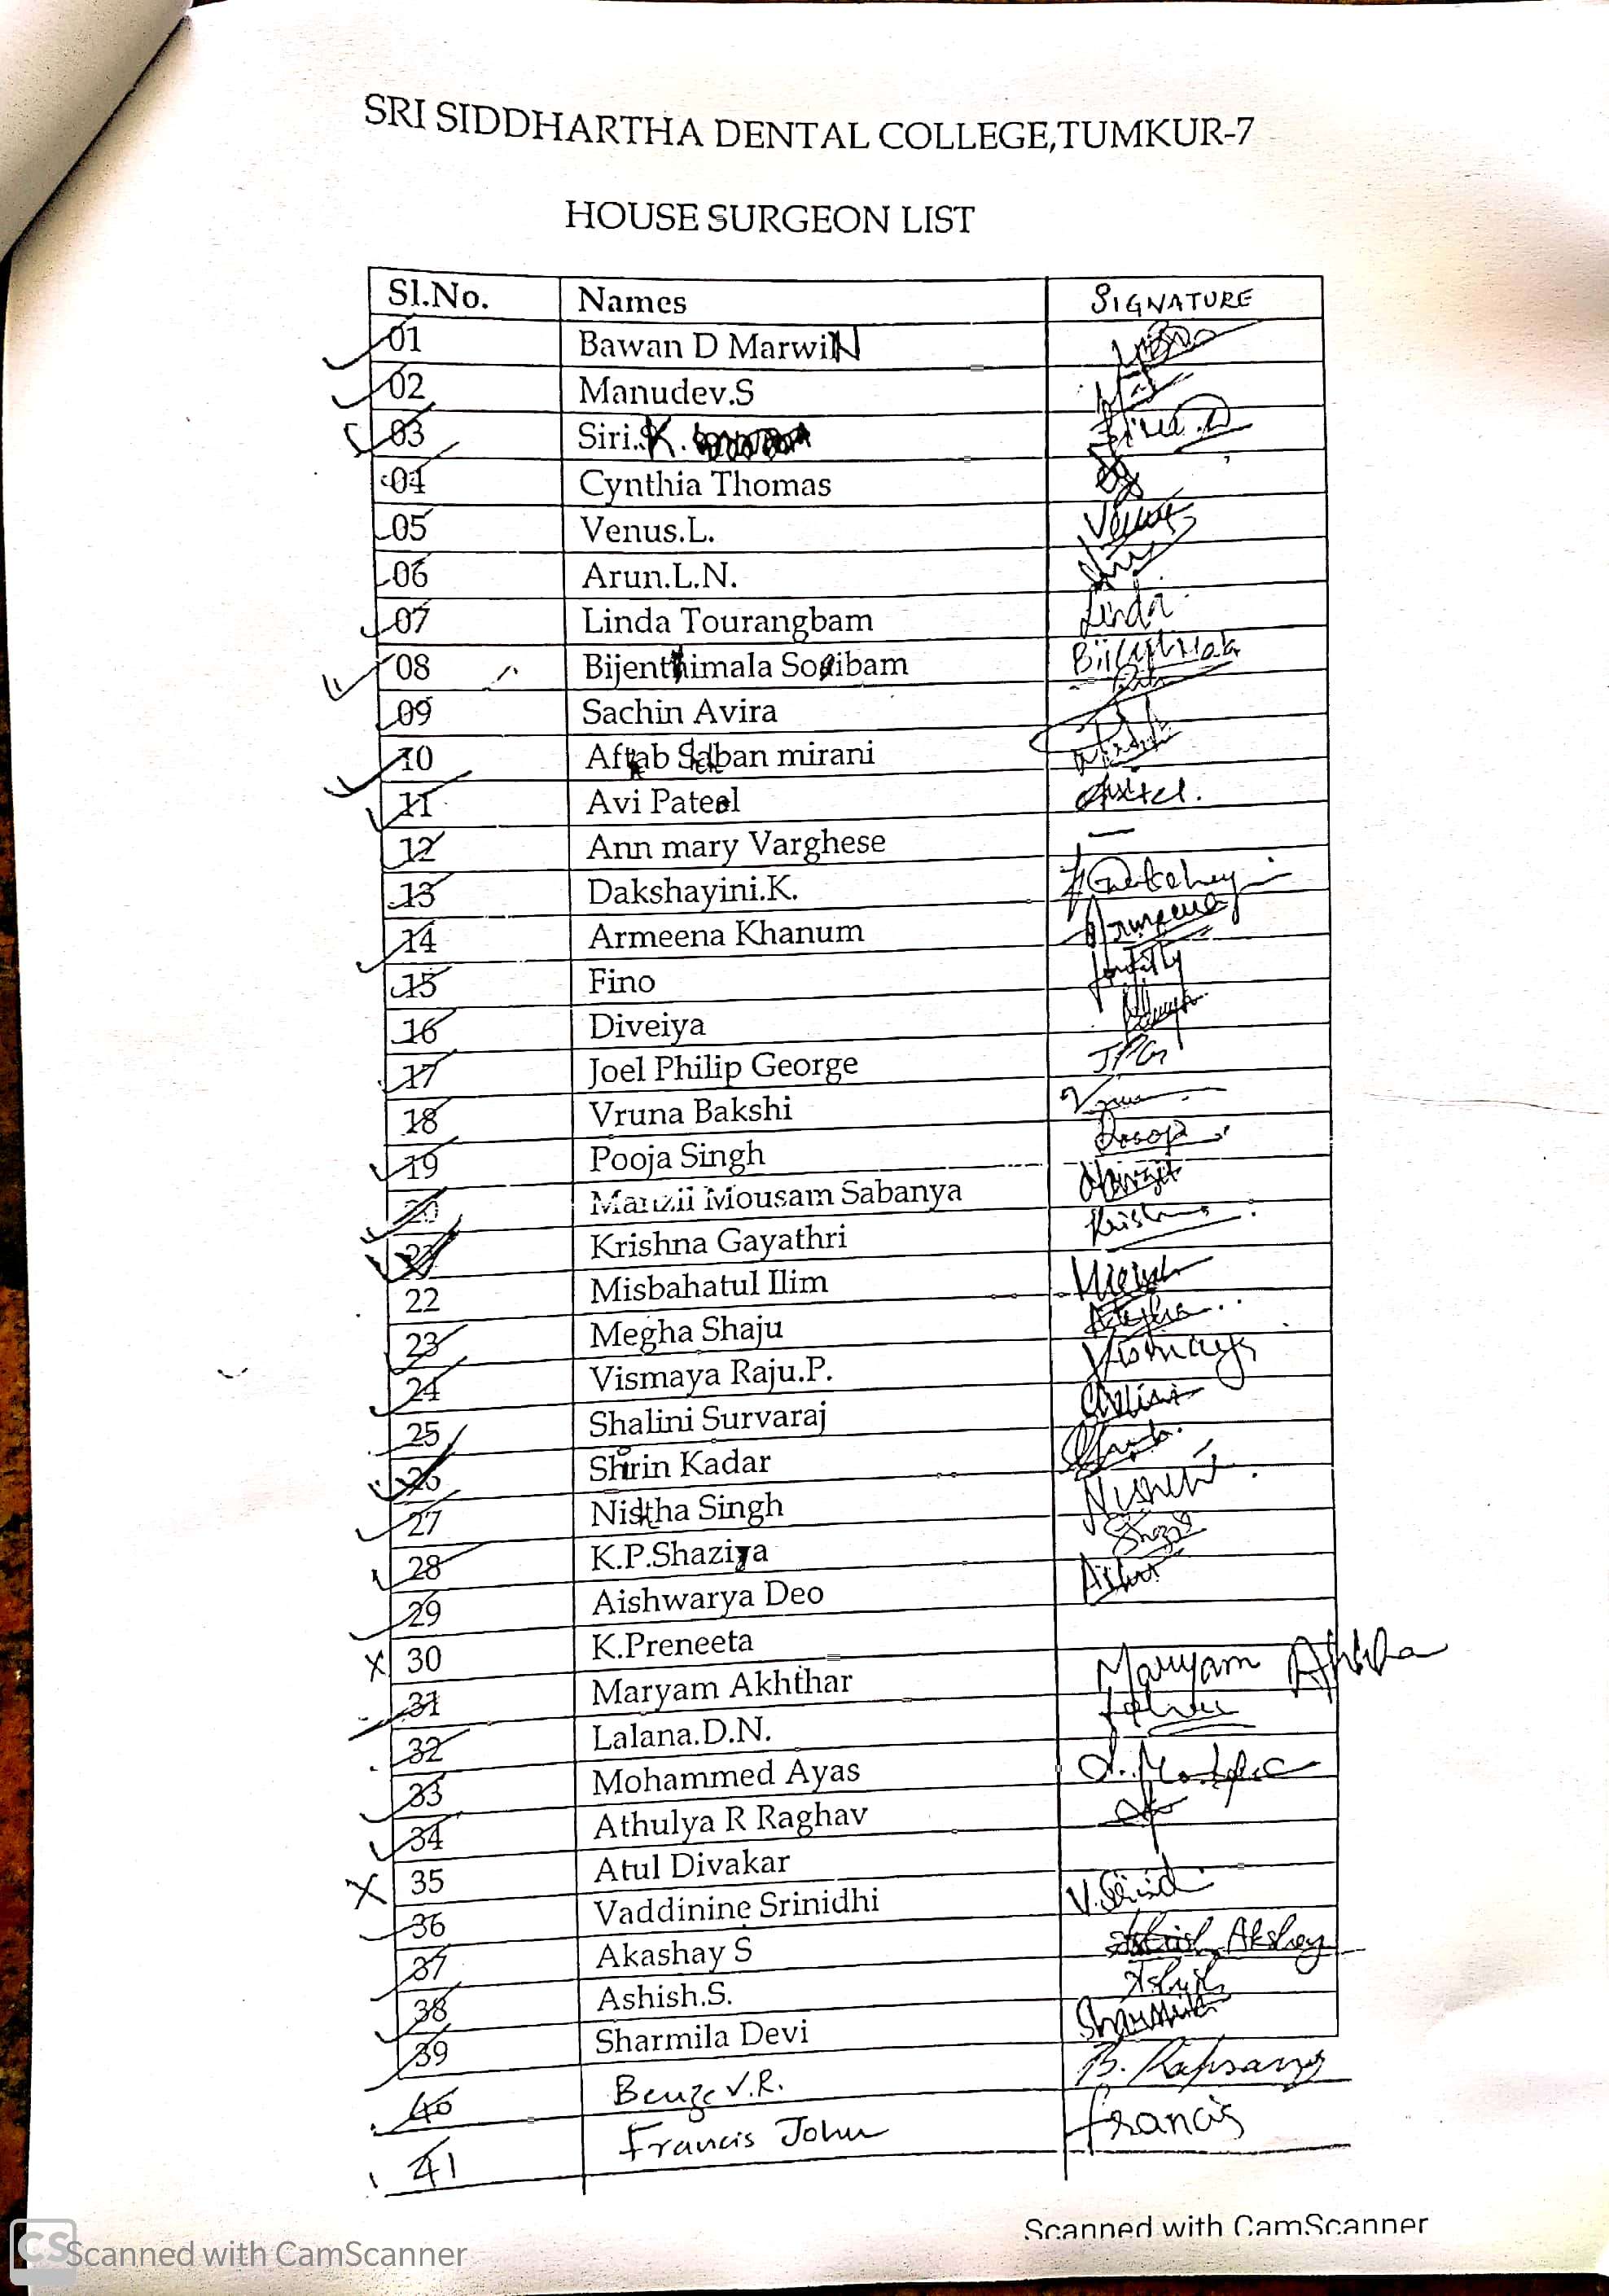 SRI SIDDHARTHA DENTAL COLLEGE,TUMKUR-7
HOUSE SURGEON LIST
Sl.No. Names SIGNATURE
01 Bawan D MarwiN
02 Manudev.S
03 Siri.K.
04 Cynthia Thomas
05 Venus.L. Venus
06 Arun.L.N.
07 Linda Tourangbam Linda
08 Bijenthimala Soribam
09 Sachin Avira
10 Aftab Saban mirani
11 Avi Patel
12 Ann mary Varghese —
13 Dakshayini.K.
14 Armeena Khanum
15 Fino
16 Diveiya
17 Joel Philip George JPG
18 Vruna Bakshi
19 Pooja Singh
20 Manzil Mousam Sabanya
21 Krishna Gayathri Krishna
22 Misbahatul Ilim
23 Megha Shaju
24 Vismaya Raju.P. Vismaya
25 Shalini Survaraj
26 Shirin Kadar
27 Nishtha Singh
28 K.P.Shaziya
29 Aishwarya Deo
30 K.Preneeta
31 Maryam Akhthar Maryam Akhtha
32 Lalana.D.N.
33 Mohammed Ayas
34 Athulya R Raghav
35 Atul Divakar
36 Vaddinine Srinidhi
37 Akashay S Akshay
38 Ashish.S. Ashish
39 Sharmila Devi Sharmila
40 Benze V.R. B.
41 Francis John Francis
Scanned with CamScanner
CS Scanned with CamScanner